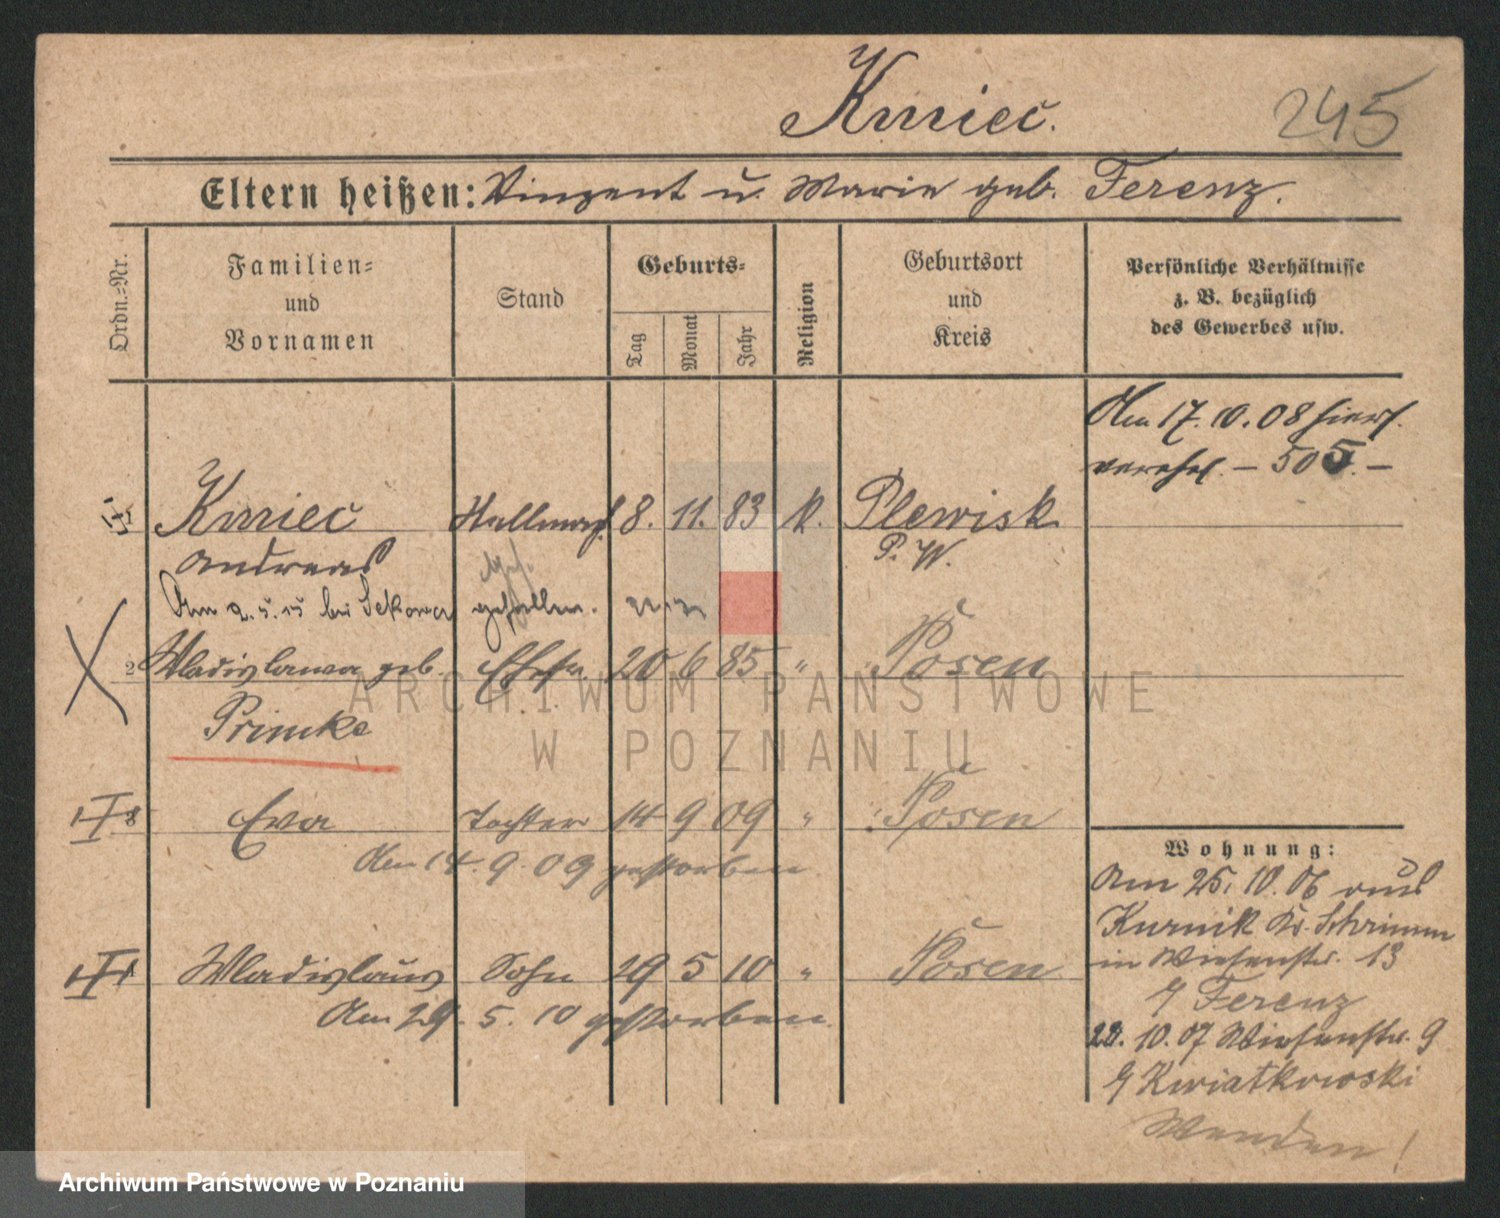 Kmieć.
245
Eltern heißen: Vinzent u. Marie geb. Ferenz.
Ordn.-Nr.
Familien-
und
Vornamen
Stand
Geburts-
Tag
Monat
Jahr
Religion
Geburtsort
und
Kreis
Persönliche Verhältnisse
z. B. bezüglich
des Gewerbes usw.
Am 17.10.08 hier
verehel. – 505. –
Kmieć 8. 11. 83 k. Plewisk
Andreas P. W.
Am 2.5.15 bei Sekowa gefallen.
2 Wladislawa geb. Ehefr. 20 6 85 " Posen
Primke
3 Eva Tochter 14 9 09 " Posen
Am 14. 9. 09 gestorben
Wladislaus Sohn 29 5 10 " Posen
Am 29. 5. 10 gestorben
Wohnung:
Am 25.10.06 aus
Kurnik Kr. Schrimm
in Wiesenstr. 13
Ferenz
28. 10. 07 Wiesenstr. 9
Kwiatkowski
Wenden!
ARCHIWUM PAŃSTWOWE
W POZNANIU
Archiwum Państwowe w Poznaniu